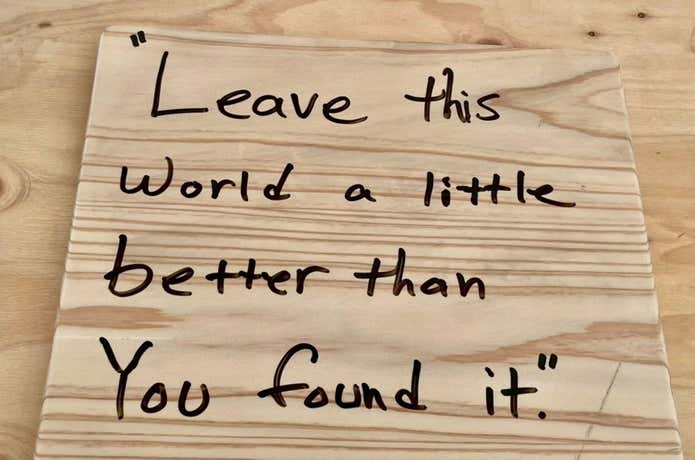 "Leave this
World a little
better than
You found it."